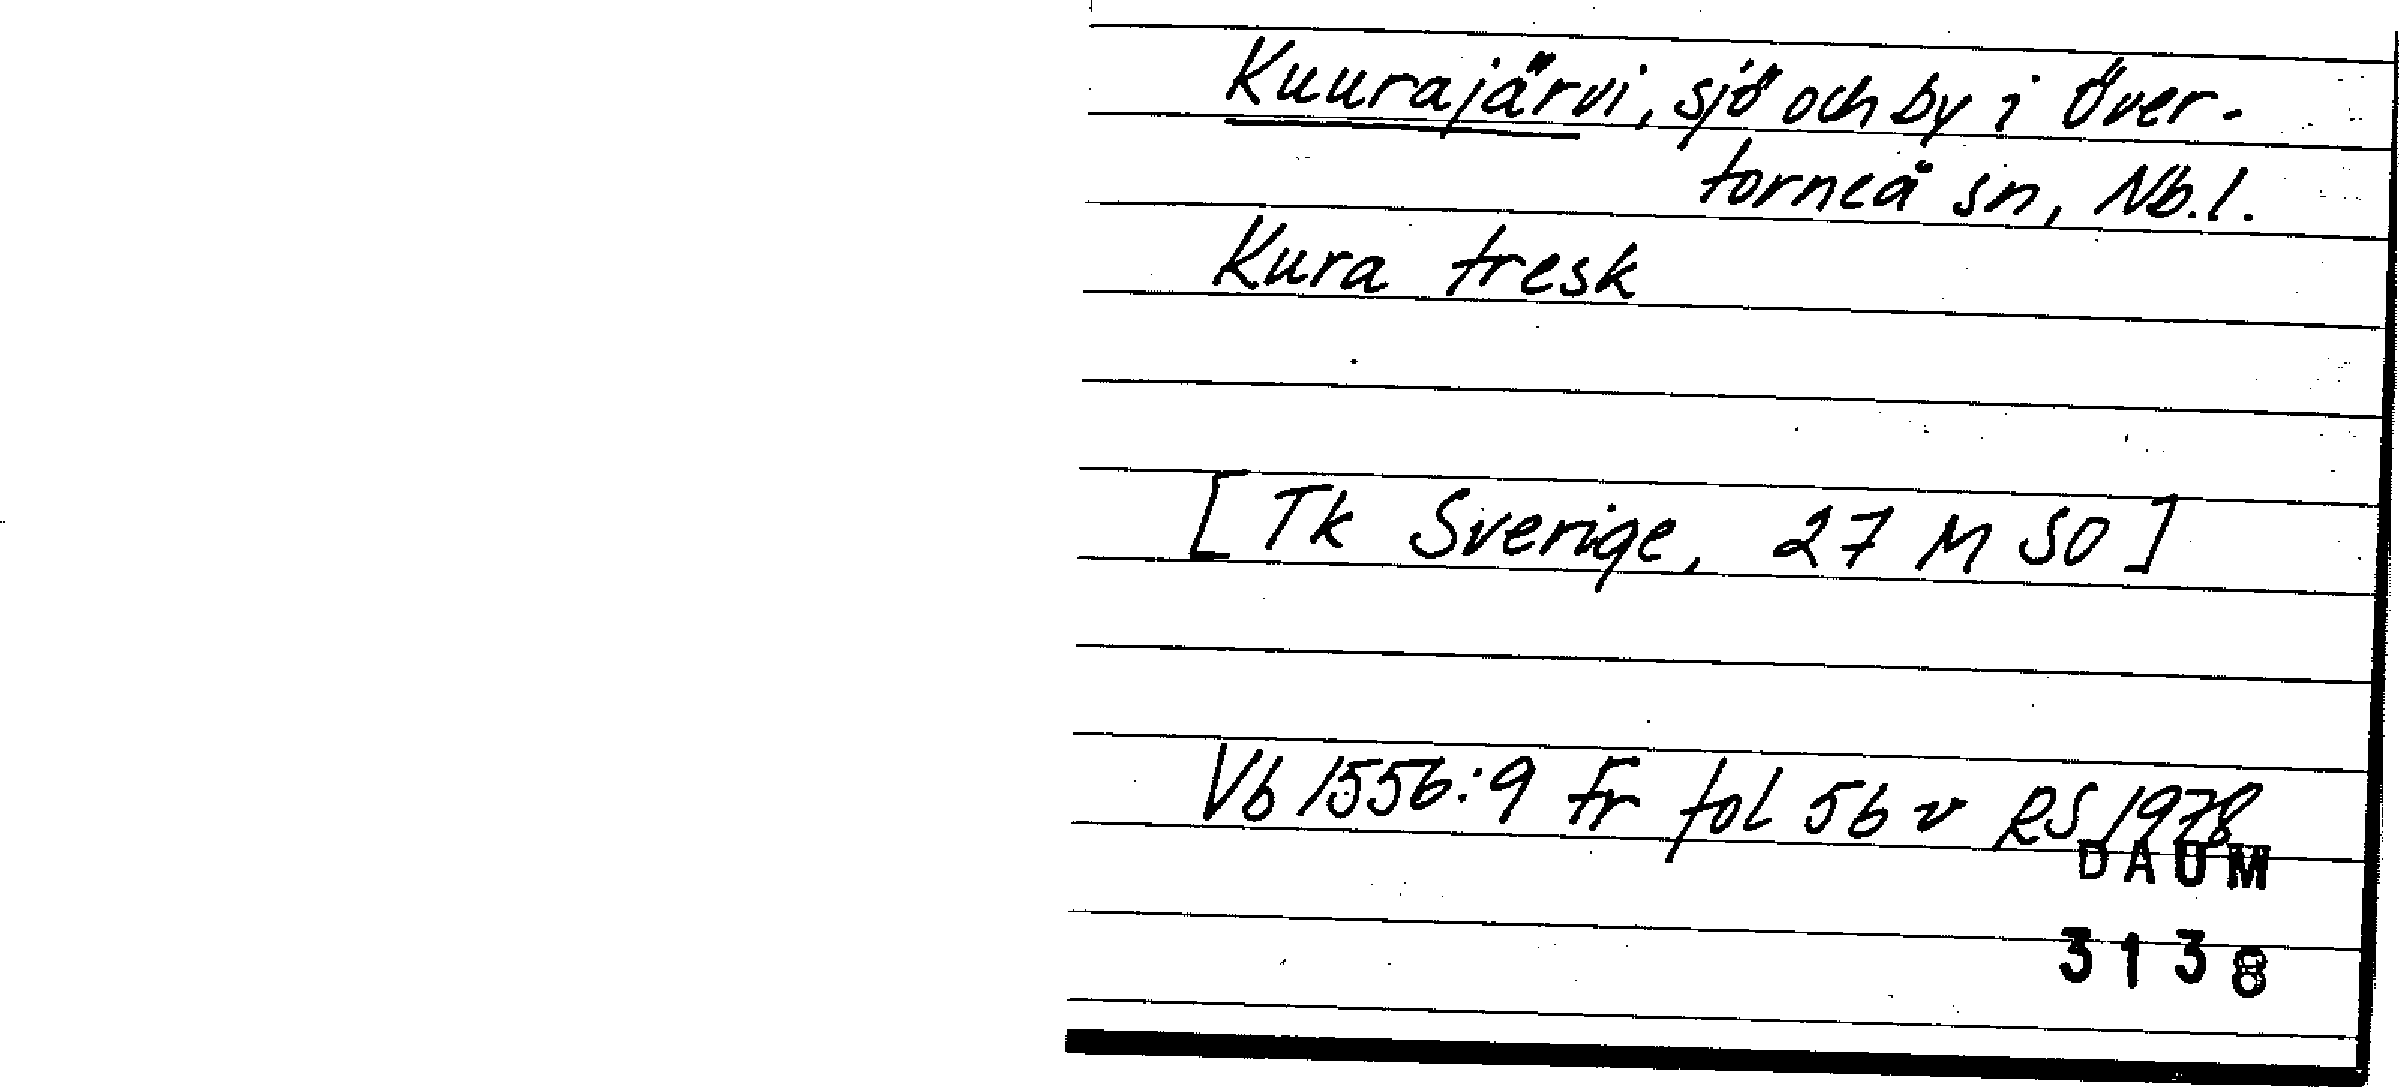 Kuurajärvi, sjö och by i Över-
torneå sn, Nb.l.
Kura tresk
[Tk Sverige, 27 M SO]
Vb 1556:9 Fr fol 56 v RS 1978
DAUM
3138